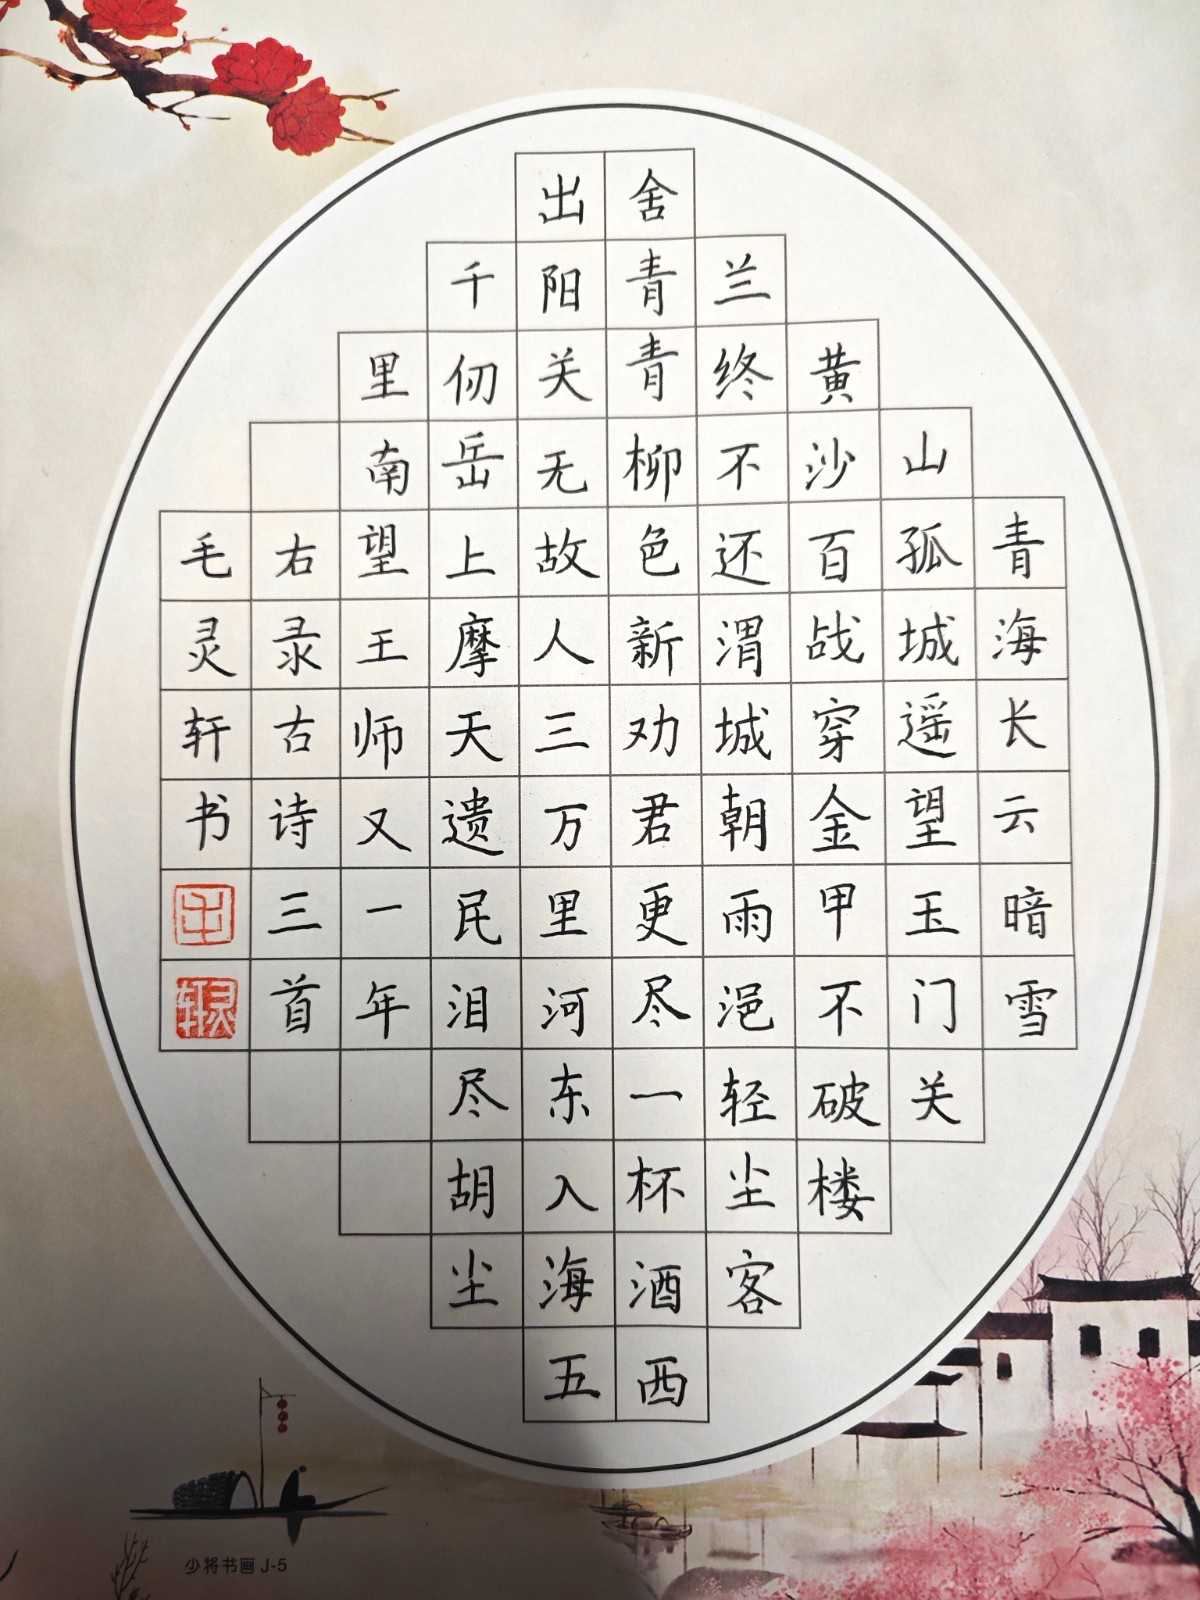 青海长云暗雪
山孤城遥望玉门关
黄沙百战穿金甲不破楼
兰终不还渭城朝雨浥轻尘客
舍青青柳色新劝君更尽一杯酒西
出阳关无故人三万里河东入海五
千仞岳上摩天遗民泪尽胡尘
里南望王师又一年
右录古诗三首
毛灵轩书
毛
灵轩
少将书画 J-5